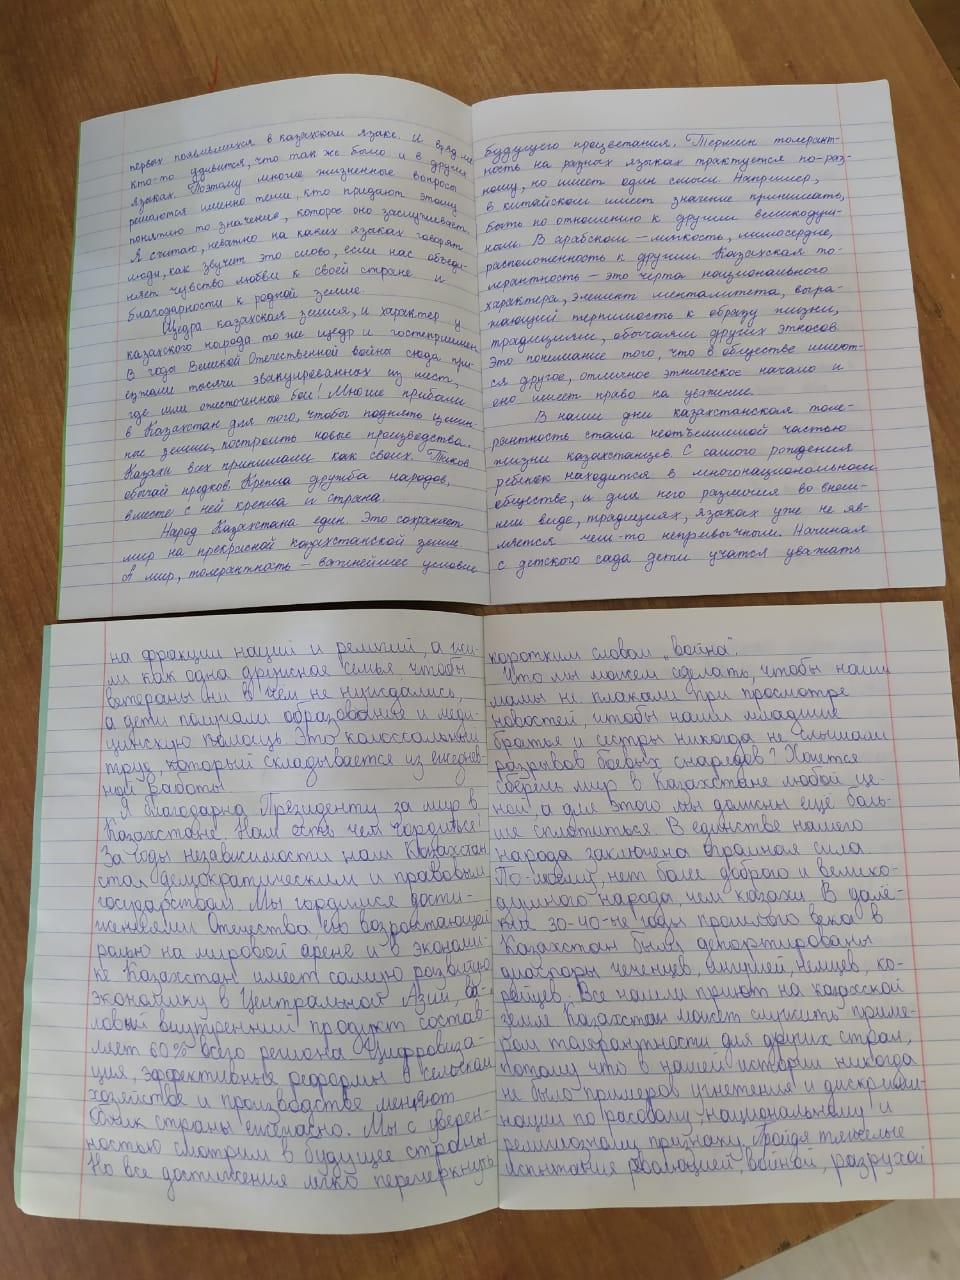 первых появившихся в казахском языке. И вряд ли
кто-то удивится, что так же было и в других
языках. Поэтому многие жизненные вопросы
решаются именно теми, кто придают этому
понятию то значение, которое оно заслуживает.
Я считаю, неважно на каких языках говорят
люди, как звучит это слово, если нас объеди-
няет чувство любви к своей стране и
благодарности к родной земле.
Щедра казахская земля, и характер у
казахского народа тоже щедр и гостеприимен.
В годы Великой Отечественной войны сюда при-
езжали тысячи эвакуированных из мест,
где шли ожесточенные бои! Многие прибыли
в Казахстан для того, чтобы поднять целин-
ные земли, построить новые производства.
Казахи всех принимали как своих. Таков
обычай предков. Крепла дружба народов,
вместе с ней крепла и страна.
Народ Казахстана един. Это сохраняет
мир на прекрасной казахстанской земле.
А мир, толерантность – важнейшее условие
будущего процветания. Термин толерант-
ность на разных языках трактуется по-раз-
ному, но имеет один смысл. Например,
в китайском имеет значение принимать,
быть по отношению к другим великодуш-
ным. В арабском – мягкость, милосердие,
расположенность к другим. Казахская то-
лерантность – это черта национального
характера, элемент менталитета, выра-
жающий терпимость к образу жизни,
традициям, обычаям других этносов.
Это понимание того, что в обществе имеют-
ся другое, отличное этническое начало и
оно имеет право на уважение.
В наши дни казахстанская толе-
рантность стала неотъемлемой частью
жизни казахстанцев. С самого рождения
ребенок находится в многонациональном
обществе, и для него различия во внеш-
нем виде, традициях, языках уже не яв-
ляется чем-то непривычным. Начиная
с детского сада дети учатся уважать
на фракции наций и религий, а жи-
ли как одна дружная семья чтобы
ветераны ни в чём не нуждались,
а дети получали образование и меди-
цинскую помощь. Это колоссальный
труд, который складывается из ежеднев-
ной работы.
Я благодарна Президенту за мир в
Казахстане. Нам есть чем гордиться!
За годы независимости наш Казахстан
стал демократическим и правовым
государством. Мы гордимся дости-
жениями Отечества, его возрастающей
ролью на мировой арене и в экономи-
ке. Казахстан имеет самую развитую
экономику в Центральной Азии, ва-
ловый внутренний продукт состав-
ляет 60% всего региона. Цифровиза-
ция, эффективные реформы в сельском
хозяйстве и производстве меняют
облик страны ежечасно. Мы с уверен-
ностью смотрим в будущее страны.
Но все достижения легко перечеркнуть
коротким словом „война".
Что мы можем сделать, чтобы наши
мамы не плакали при просмотре
новостей, чтобы наши младшие
братья и сестры никогда не слышали
разрывов боевых снарядов? Хочется
сберечь мир в Казахстане любой це-
ной, а для этого мы должны ещё боль-
ше сплотиться. В единстве нашего
народа заключена огромная сила.
По-моему, нет более доброго и велико-
душного народа, чем казахи. В далё-
кие 30-40-ые годы прошлого века в
Казахстан были депортированы
диаспоры чеченцев, ингушей, немцев, ко-
рейцев. Все нашли приют на казахской
земле. Казахстан может служить приме-
ром толерантности для других стран,
потому что в нашей истории никогда
не было примеров угнетения и дискрими-
нации по расовому, национальному и
религиозному признаку. Пройдя тяжелые
испытания, революцией, войной, разрухой